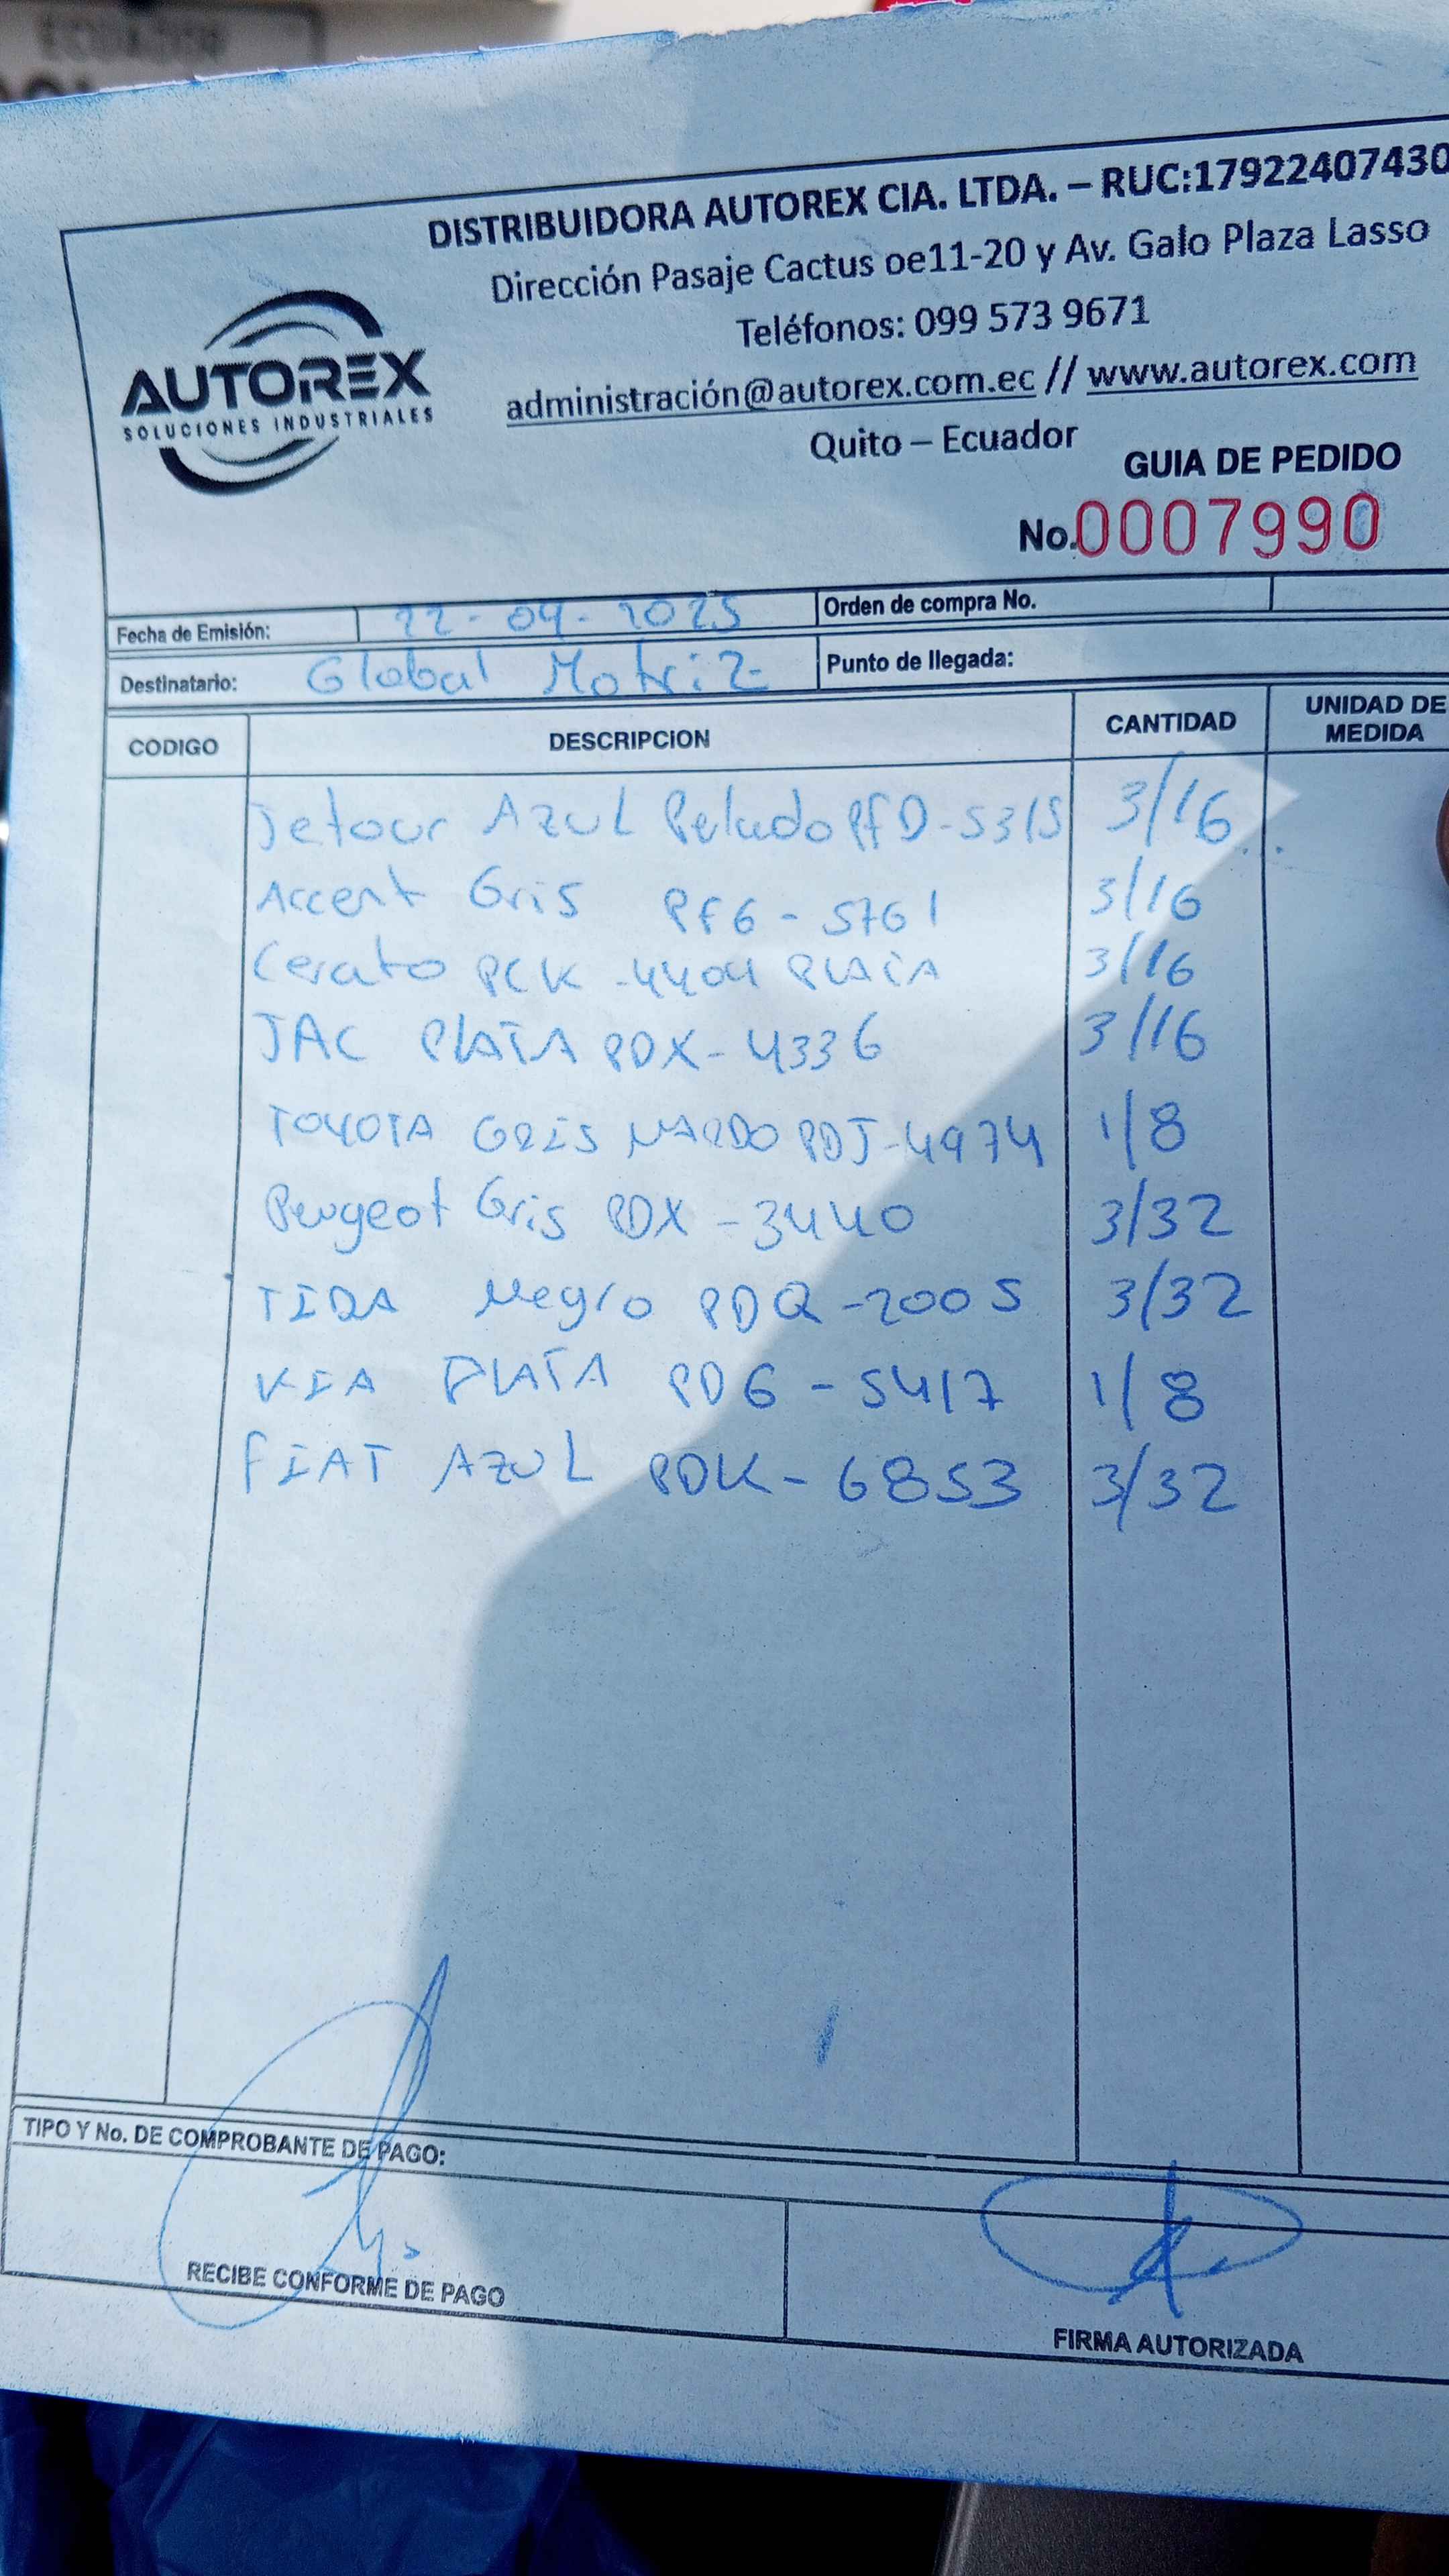 ECUADOR
DISTRIBUIDORA AUTOREX CIA. LTDA. – RUC:17922407430
Dirección Pasaje Cactus oe11-20 y Av. Galo Plaza Lasso
Teléfonos: 099 573 9671
administración@autorex.com.ec // www.autorex.com
Quito – Ecuador
AUTOREX
SOLUCIONES INDUSTRIALES
GUIA DE PEDIDO
No.0007990
Fecha de Emisión: 22-09-2025 Orden de compra No.
Destinatario: Global Motriz Punto de llegada:
CODIGO DESCRIPCION CANTIDAD UNIDAD DE MEDIDA
Jetour AZUL Peludo PFD-5315 3/16
Accent Gris PFG-5761 3/16
Cerato PCK-4404 PLATA 3/16
JAC PLATA PDX-4336 3/16
TOYOTA GRIS NARDO PDJ-4974 1/8
Peugeot Gris PDX-3440 3/32
TIDA Negro PDQ-2005 3/32
KIA PLATA PDG-5417 1/8
FIAT AZUL PDK-6853 3/32
TIPO Y No. DE COMPROBANTE DE PAGO:
RECIBE CONFORME DE PAGO
FIRMA AUTORIZADA